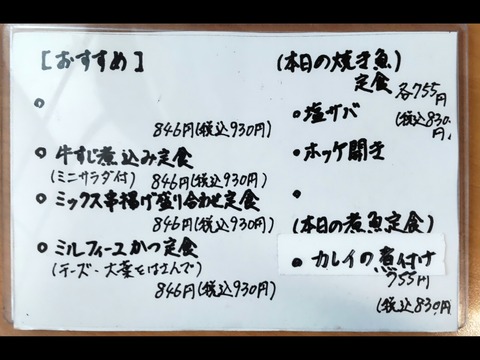 [おすすめ]
846円(税込930円)
牛すじ煮込み定食
(ミニサラダ付) 846円(税込930円)
ミックス串揚げ盛り合わせ定食
846円(税込930円)
ミルフィーユかつ定食
(チーズ・大葉をはさんで)
846円(税込930円)
(本日の焼き魚)
定食 各755円
(税込830円)
塩サバ
ホッケ開き
(本日の煮魚定食)
カレイの煮付け
755円
(税込830円)